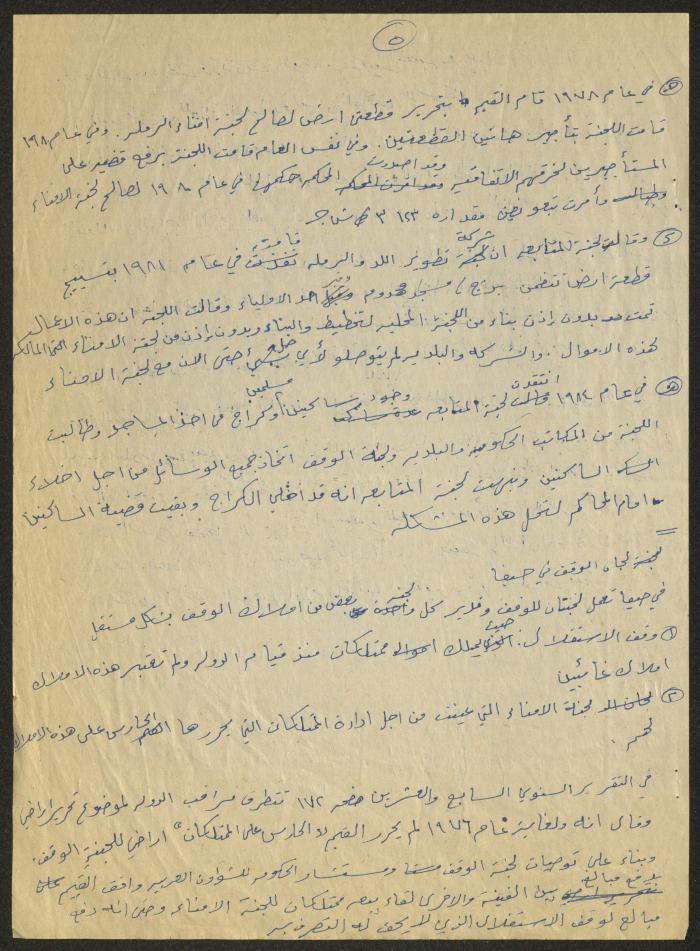 ٥
٥ في عام ١٩٧٨ قام القيم بتحرير قطعتي ارض لصالح لجنة امناء الرملة. وفي عام ١٩٨
قامت اللجنة بتأجير هاتين القطعتين. وفي نفس العام قامت اللجنة برفع قضية على
المستأجرين لخرقهم الاتفاقية وقد اصدرت المحكمة حكمها في عام ١٩٨٠ لصالح لجنة الامناء
وأمرت بتعويض مقداره ١٢٣ ٣
وقالت لجنة المتابعة ان شركة تطوير اللد والرملة قامت في عام ١٩٨١ بتسييج
قطعة ارض تتضمن مسجد مهدوم وقبر احد الاولياء وقالت اللجنة ان هذه الاعمال
تمت بدون إذن بناء من اللجنة المحلية لتخطيط والبناء وبدون إذن من لجنة الامناء المالكة
لهذه الاموال. والشركة والبلدية لم يتوصلو لأي حل حتى الان مع لجنة الامناء
في عام ١٩٨٢ انتقدت لجنة المتابعة وجود ساكنين مسلمين وكراج في احد المساجد وطالبت
اللجنة من المكاتب الحكومية والبلدية ولجنة الوقف اتخاذ جميع الوسائل من اجل اخلاء
الساكنين ونبهت لجنة المتابعة انه قد اخلي الكراج وبقيت قضية الساكنين
امام المحاكم لتحل هذه المشكلة
لجان الوقف في حيفا
في حيفا تعمل لجنتان للوقف وتدير كل لجنة بعض من املاك الوقف بشكل مستقل
١ وقف الاستقلال: حيث يملك ممتلكات منذ قيام الدولة ولم تعتبر هذه الاملاك
املاك غائبين
٢ لجنة الامناء التي عينت من اجل ادارة الممتلكات التي يحررها الحارس على هذه الاملاك
لهم.
في التقرير السنوي السابع والعشرين صفحة ١٧٢ تتطرق مراقب الدولة لموضوع تحرير اراضي
وقال انه ولغاية عام ١٩٧٦ لم يحرر القيم "الحارس على الممتلكات" اراضي للجنة الوقف.
وبناء على توصيات لجنة الوقف ومستشار الحكومة للشؤون العربية وافق القيم
بدفع مبالغ بين الفينة والاخرى لقاء بعض ممتلكات للجنة الامناء وحتى انه دفع
مبالغ لوقف الاستقلال الذي يحق له التصرف